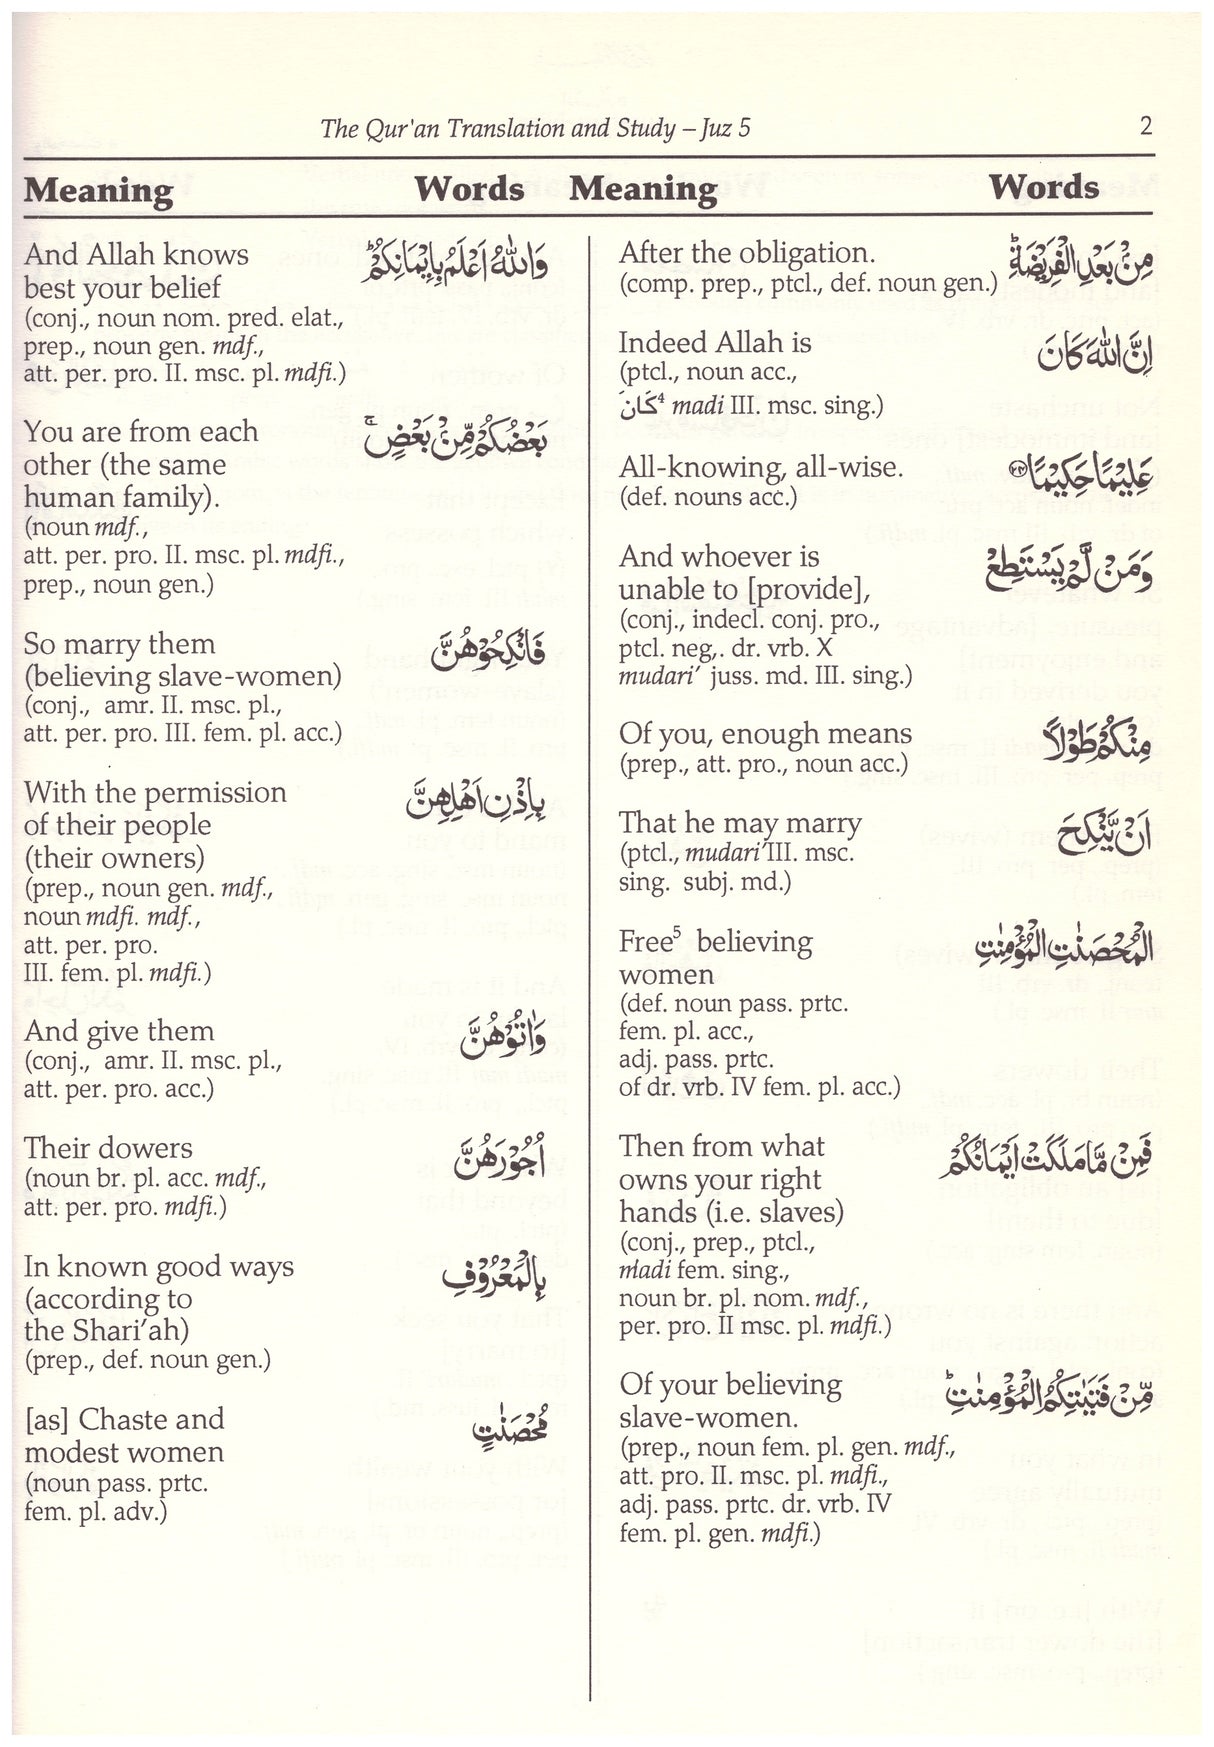 The Qur'an Translation and Study – Juz 5 2
Meaning Words Meaning Words
After the obligation. مِنْۢ بَعْدِ الْفَرِيْضَةِ ؕ
(comp. prep., ptcl., def. noun gen.)
Indeed Allah is اِنَّ اللّٰهَ كَانَ
(ptcl., noun acc.,
كَانَ⁴ madi III. msc. sing.)
All-knowing, all-wise. عَلِيْمًا حَكِيْمًا ﴿۲۴﴾
(def. nouns acc.)
And whoever is وَمَنْ لَّمْ يَسْتَطِعْ
unable to [provide],
(conj., indecl. conj. pro.,
ptcl. neg,. dr. vrb. X
mudari' juss. md. III. sing.)
Of you, enough means مِنْكُمْ طَوْلًا
(prep., att. pro., noun acc.)
That he may marry اَنْ يَّنْكِحَ
(ptcl., mudari'III. msc.
sing. subj. md.)
Free⁵ believing الْمُحْصَنٰتِ الْمُؤْمِنٰتِ
women
(def. noun pass. prtc.
fem. pl. acc.,
adj. pass. prtc.
of dr. vrb. IV fem. pl. acc.)
Then from what فَمِنْ مَّا مَلَكَتْ اَيْمَانُكُمْ
owns your right
hands (i.e. slaves)
(conj., prep., ptcl.,
madi fem. sing.,
noun br. pl. nom. mdf.,
per. pro. II msc. pl. mdfi.)
Of your believing مِّنْ فَتَيٰتِكُمُ الْمُؤْمِنٰتِ ؕ
slave-women.
(prep., noun fem. pl. gen. mdf.,
att. pro. II. msc. pl. mdfi.,
adj. pass. prtc. dr. vrb. IV
fem. pl. gen. mdfi.)
And Allah knows وَاللّٰهُ اَعْلَمُ بِاِيْمَانِكُمْ ؕ
best your belief
(conj., noun nom. pred. elat.,
prep., noun gen. mdf.,
att. per. pro. II. msc. pl. mdfi.)
You are from each بَعْضُكُمْ مِّنْۢ بَعْضٍ ۚ
other (the same
human family).
(noun mdf.,
att. per. pro. II. msc. pl. mdfi.,
prep., noun gen.)
So marry them فَانْكِحُوْهُنَّ
(believing slave-women)
(conj., amr. II. msc. pl.,
att. per. pro. III. fem. pl. acc.)
With the permission بِاِذْنِ اَهْلِهِنَّ
of their people
(their owners)
(prep., noun gen. mdf.,
noun mdfi. mdf.,
att. per. pro.
III. fem. pl. mdfi.)
And give them وَاٰتُوْهُنَّ
(conj., amr. II. msc. pl.,
att. per. pro. acc.)
Their dowers اُجُوْرَهُنَّ
(noun br. pl. acc. mdf.,
att. per. pro. mdfi.)
In known good ways بِالْمَعْرُوْفِ
(according to
the Shari'ah)
(prep., def. noun gen.)
[as] Chaste and مُحْصَنٰتٍ
modest women
(noun pass. prtc.
fem. pl. adv.)